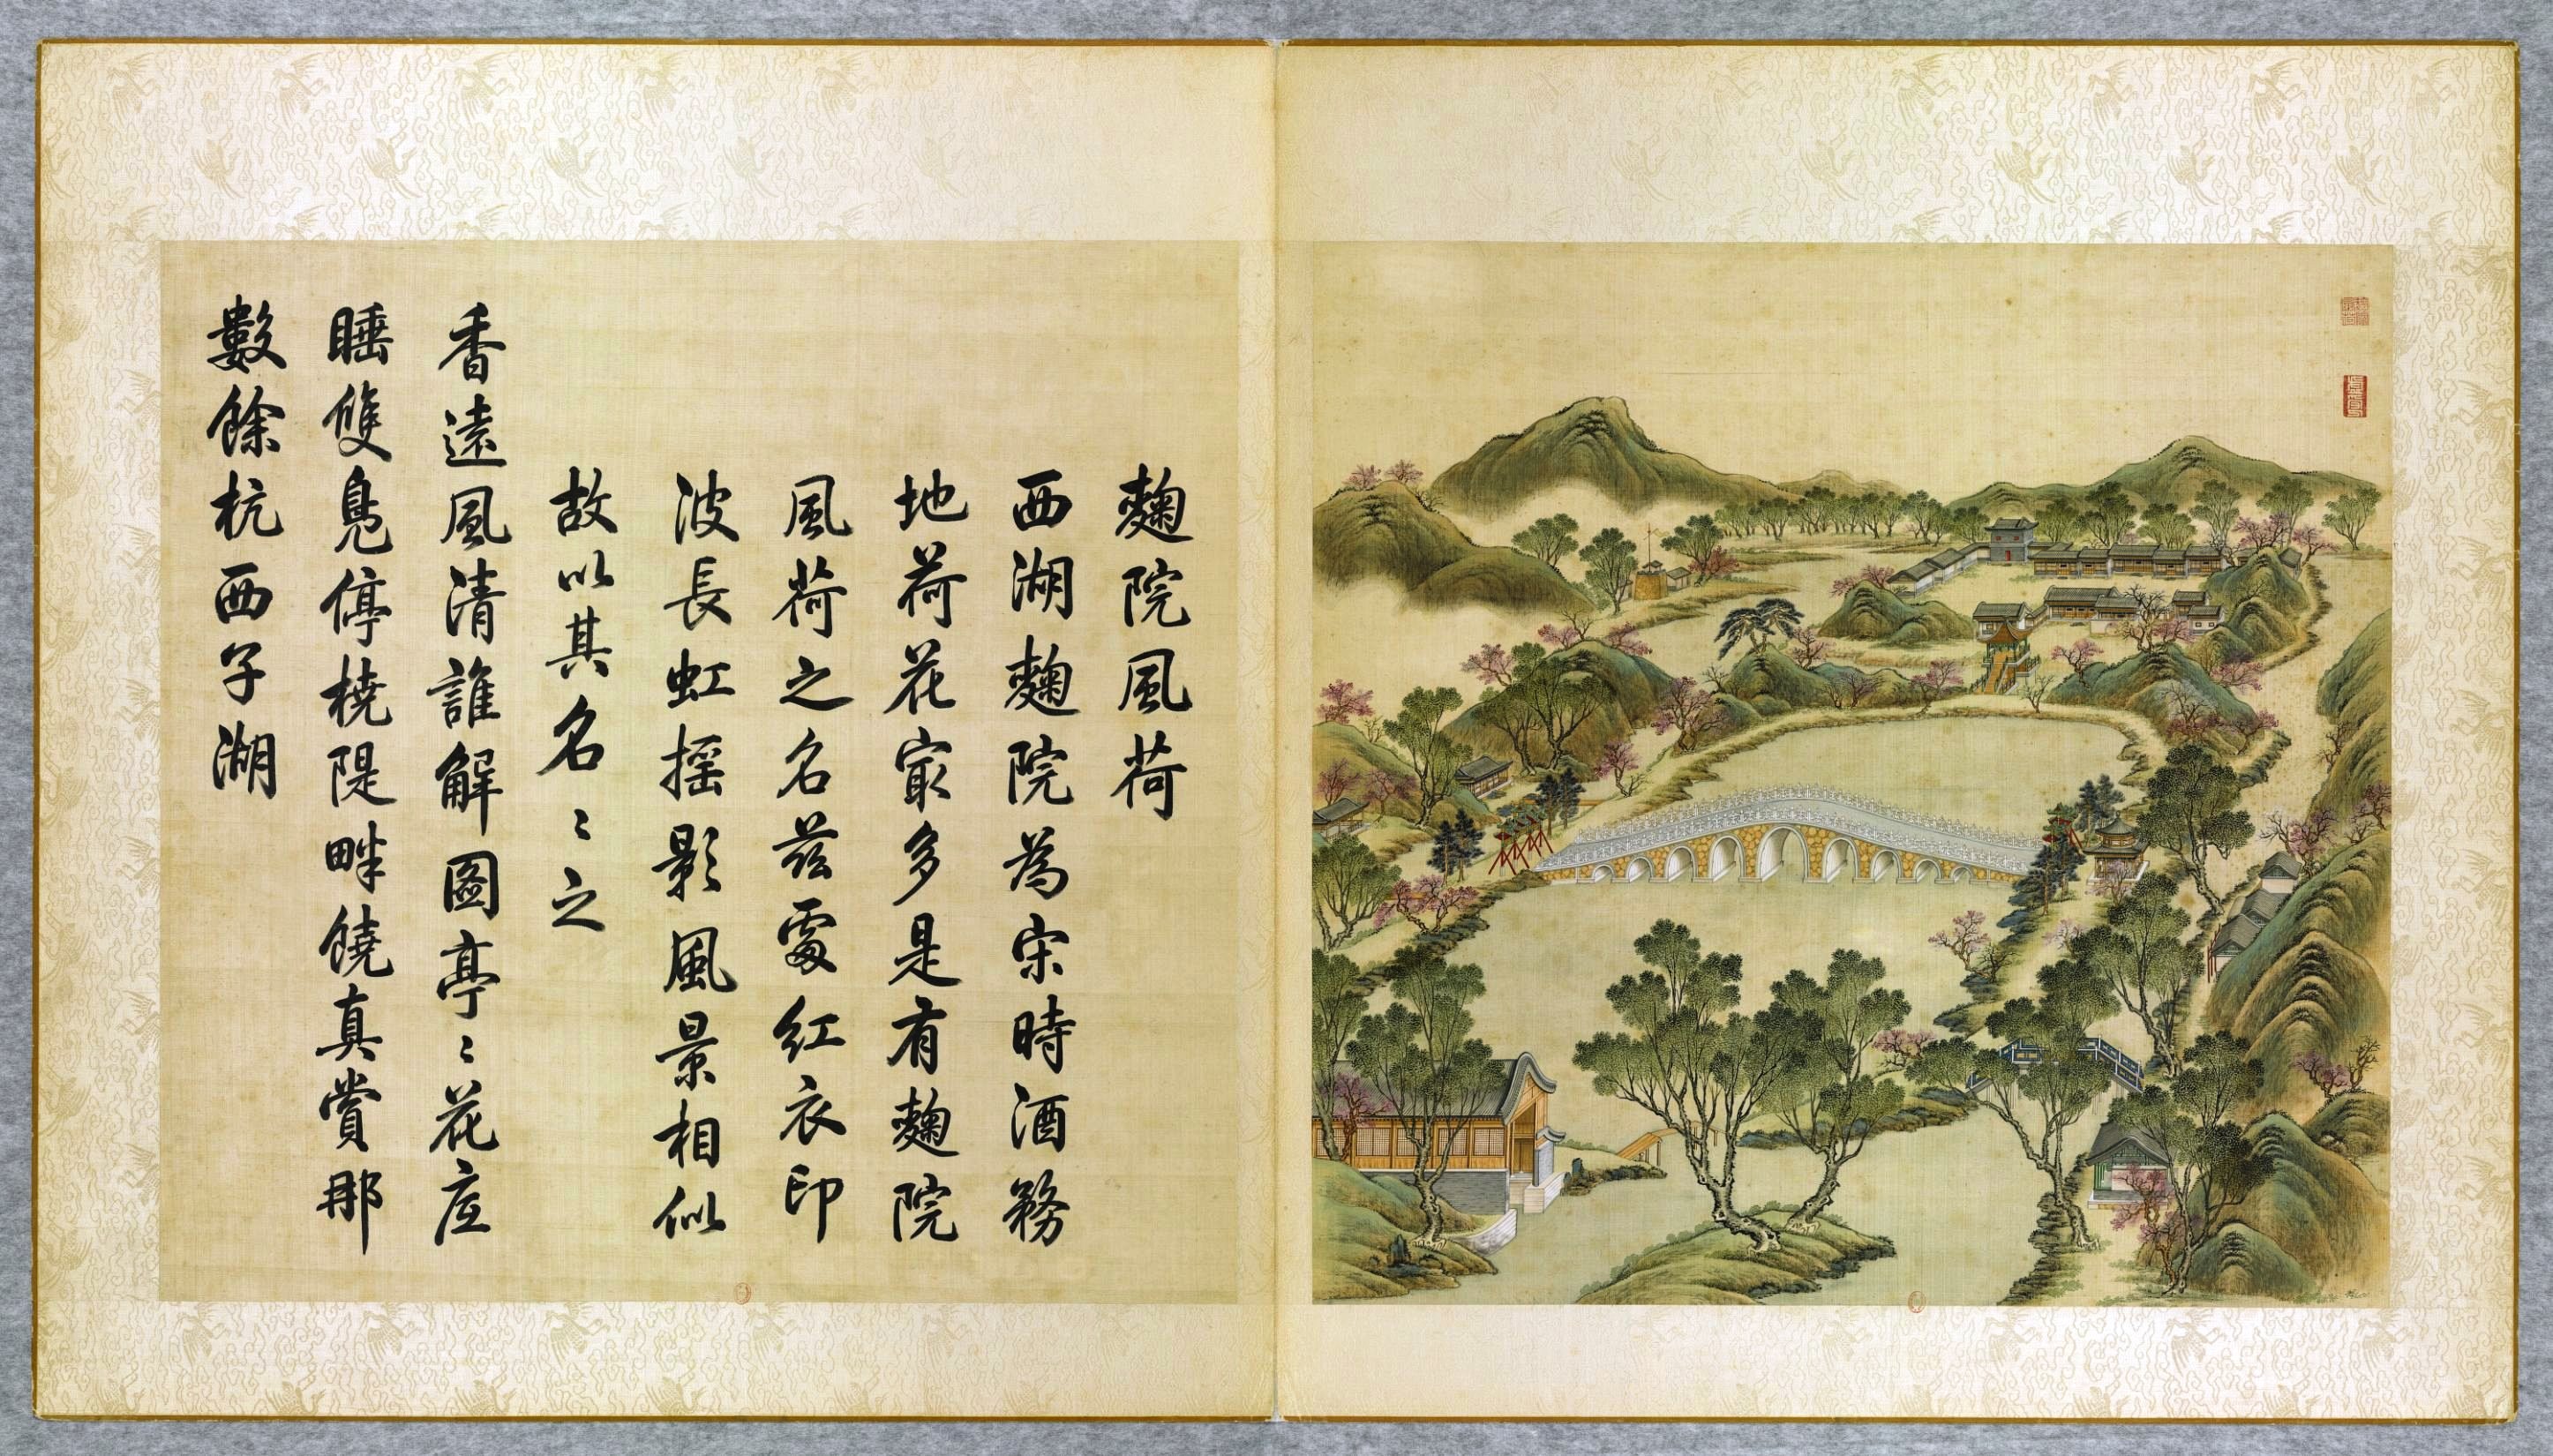 麴院風荷
西湖麴院為宋時酒務
地荷花冣多是有麴院
風荷之名茲處紅衣印
波長虹搖影風景相似
故以其名〻之
香遠風清誰解圖亭〻花底
睡雙鳧停橈隄畔饒真賞那
數餘杭西子湖